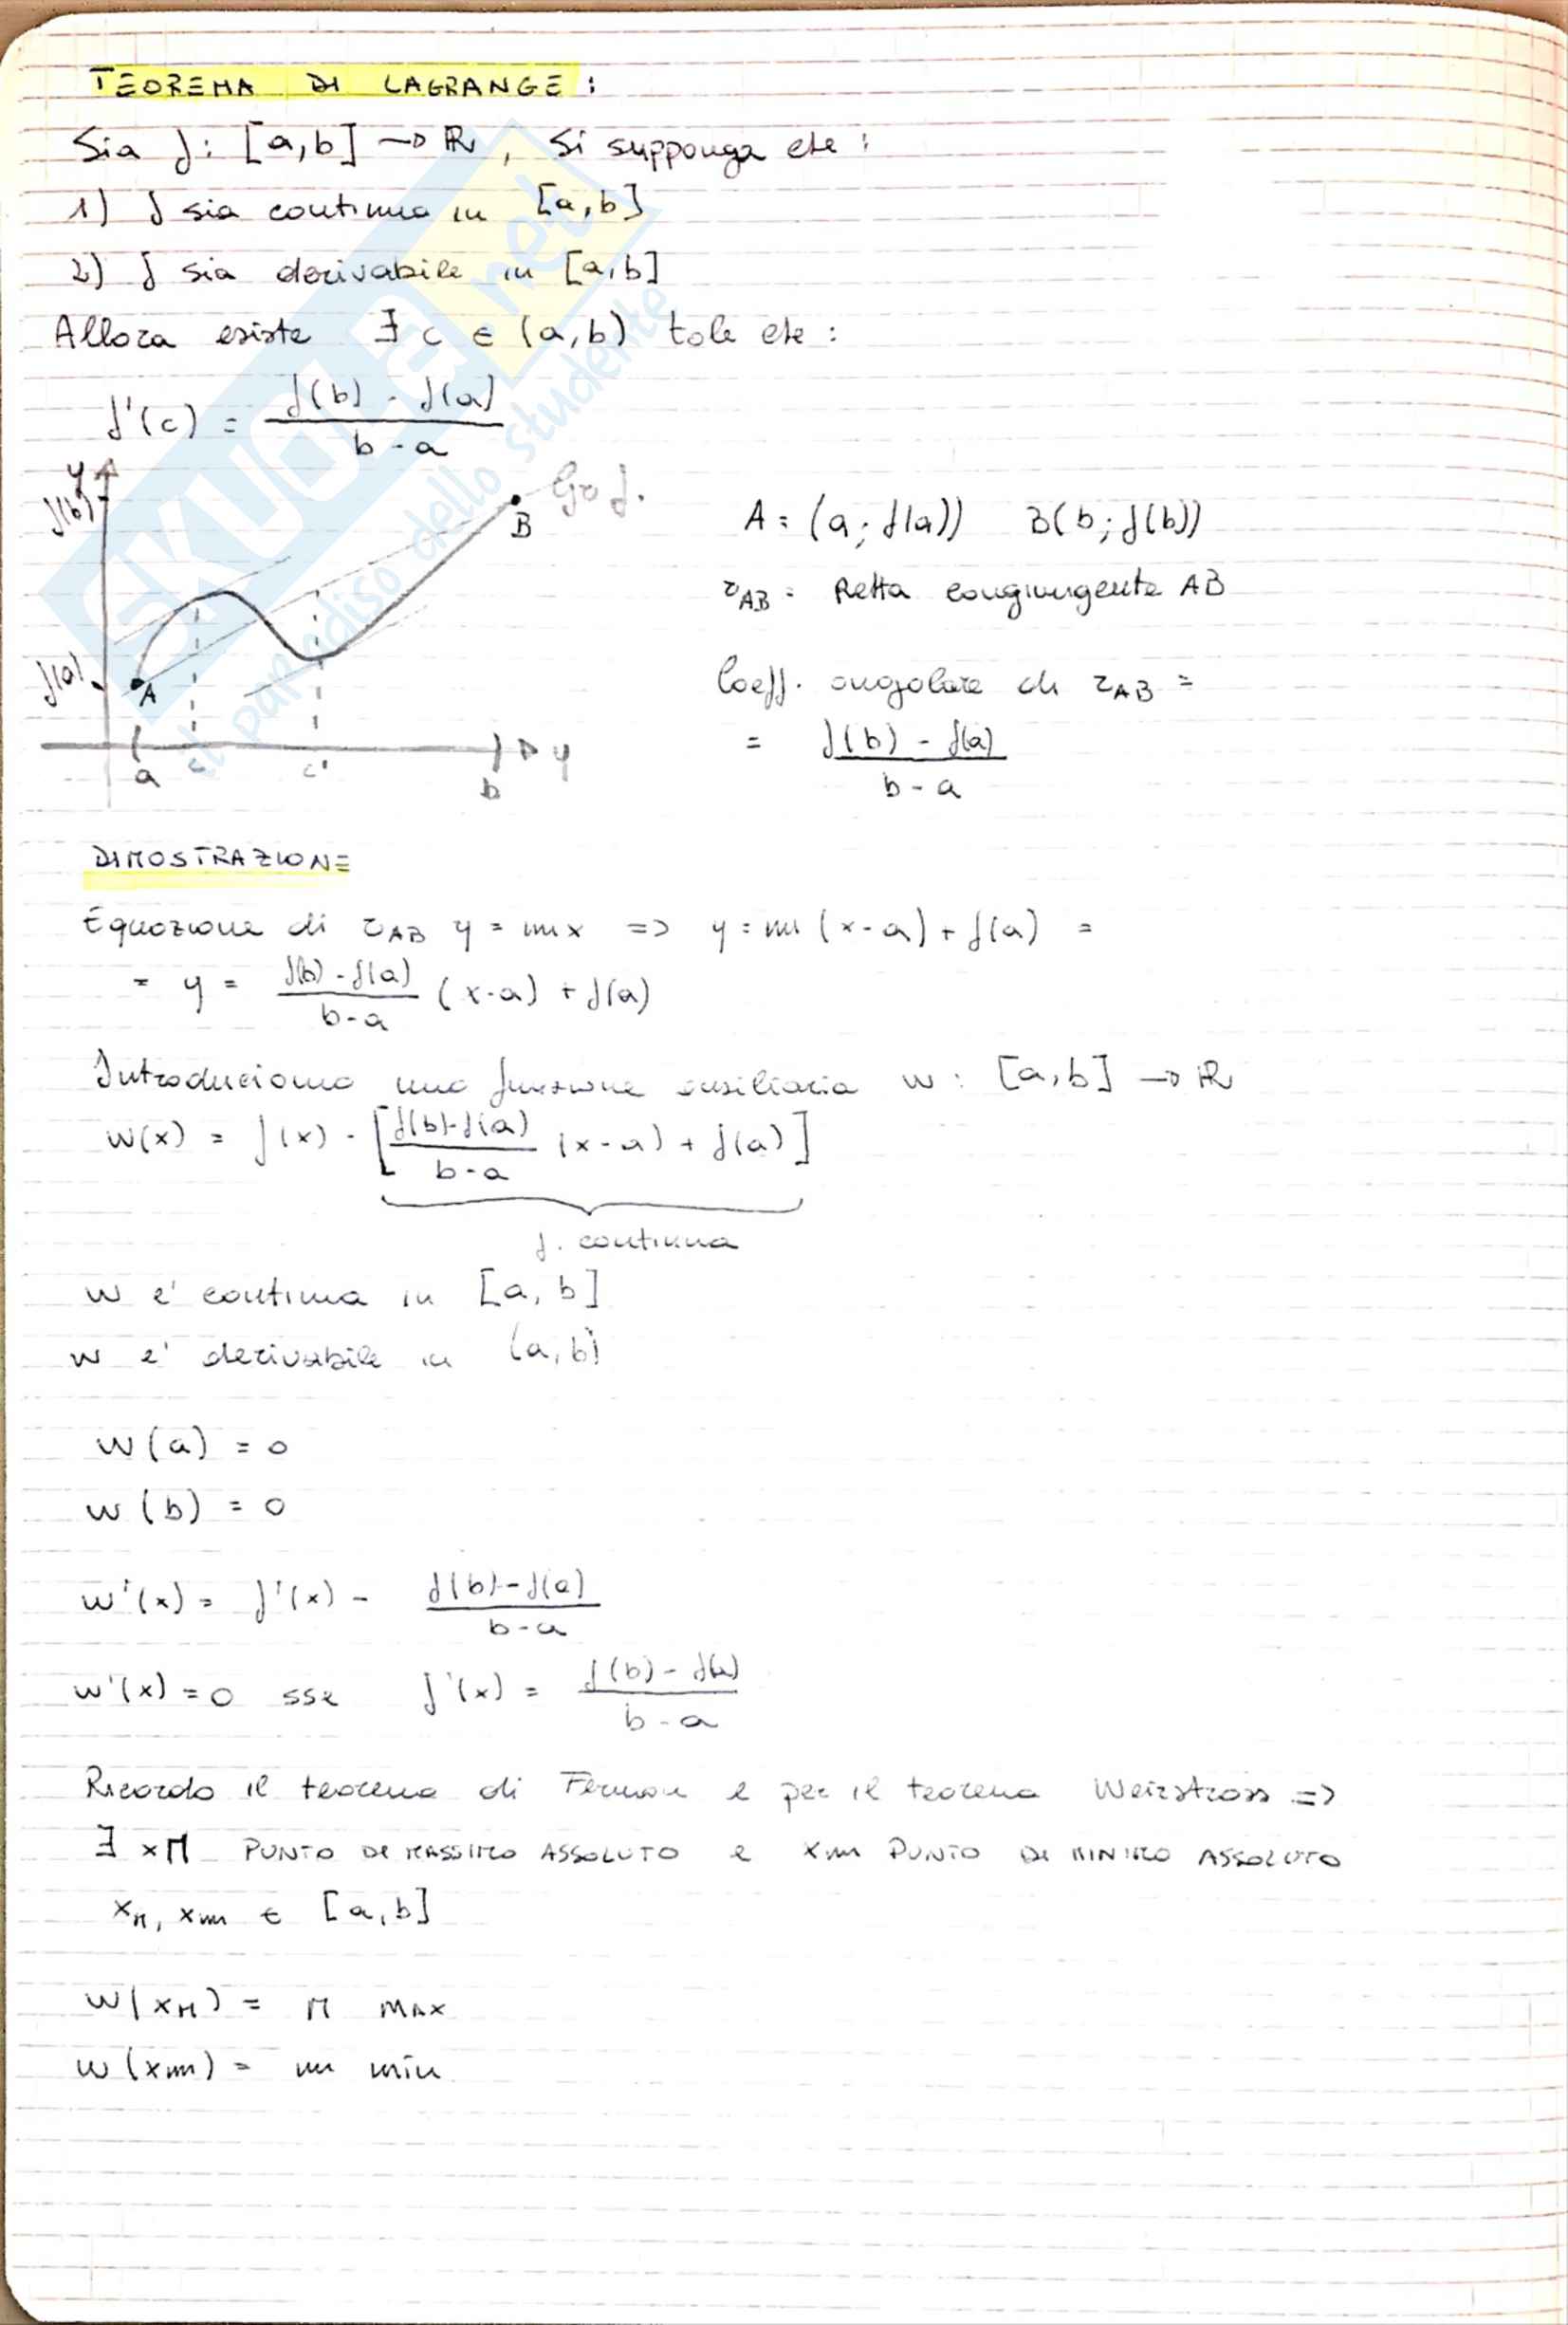 TEOREMA DI LAGRANGE :
Sia f: [a,b] → ℝ, Si supponga che :
1) f sia continua in [a,b]
2) f sia derivabile in [a,b]
Allora esiste ∃ c ∈ (a,b) tale che :
f'(c) = (f(b) - f(a)) / (b - a)
y
f(b)
Gr f.
B
f(a)
A
a c c' b y
A = (a; f(a)) B(b; f(b))
r_AB = Retta congiungente AB
Coeff. angolare di r_AB =
= (f(b) - f(a)) / (b - a)
DIMOSTRAZIONE
Equazione di r_AB y = mx => y = m (x-a) + f(a) =
= y = (f(b) - f(a)) / (b-a) (x-a) + f(a)
Introduciamo una funzione ausiliaria w : [a,b] → ℝ
w(x) = f(x) - [(f(b)-f(a)) / (b-a) (x-a) + f(a)]
f. continua
w e' continua in [a,b]
w e' derivabile in (a,b)
w(a) = 0
w(b) = 0
w'(x) = f'(x) - (f(b)-f(a)) / (b-a)
w'(x) = 0 sse f'(x) = (f(b) - f(a)) / (b-a)
Ricordo il teorema di e per il teorema Weirstrass =>
∃ xM PUNTO DI MASSIMO ASSOLUTO e xm PUNTO DI MINIMO ASSOLUTO
xM, xm ∈ [a,b]
w(xM) = M MAX
w(xm) = m min
SKUOLA.net
il paradiso dello studente